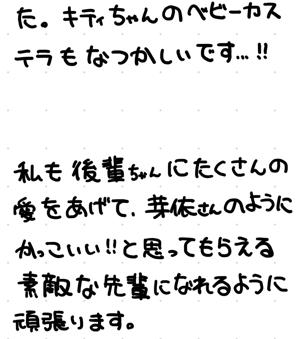 た。キティちゃんのベビーカス
テラもなつかしいです...!!
私も後輩ちゃんにたくさんの
愛をあげて、芽依さんのように
かっこいい!!と思ってもらえる
素敵な先輩になれるように
頑張ります。